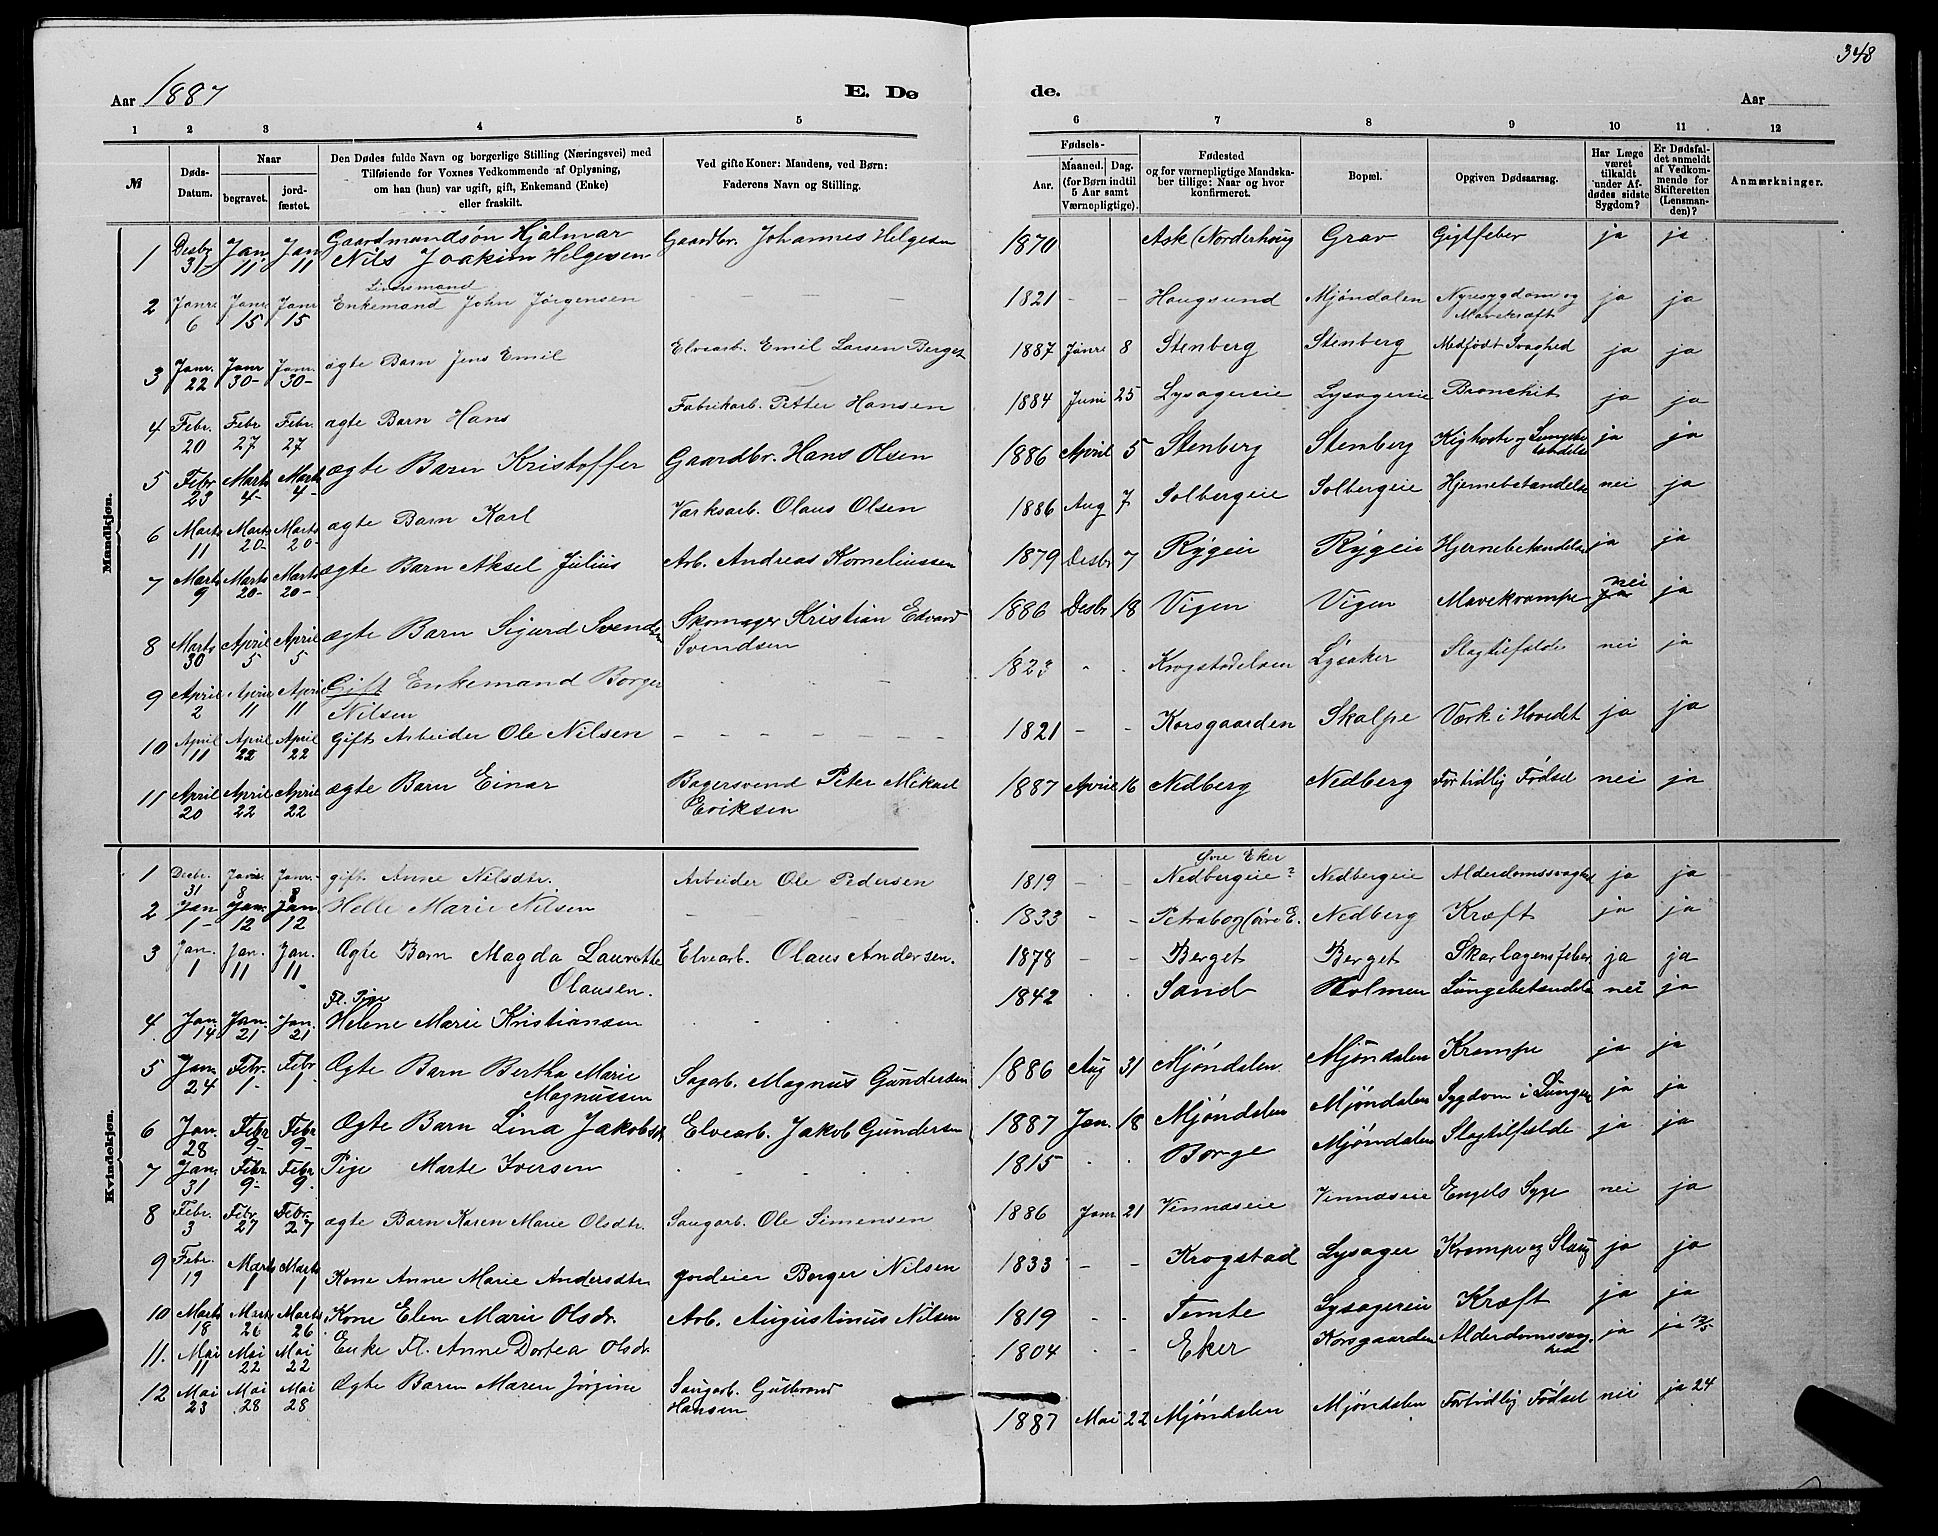 348
Aar 1887 E. De de. Aar
1 2 3 4 5 6 7 8 9 10 11 12
№ Døds-Datum. Naar begravet. jord-fæstet. Den Dødes fulde Navn og borgerlige Stilling (Næringsvei) med Tilføiende for Voxnes Vedkommende af Oplysning, om han (hun) var ugift, gift, Enkemand (Enke) eller fraskilt. Ved gifte Koner: Mandens, ved Børn: Faderens Navn og Stilling. Fødsels- Aar. Maaned. Dag. (for Børn indtil 5 Aar samt Værnepligtige). Fødested og for værnepligtige Mandskaber tillige: Naar og hvor konfirmeret. Bopæl. Opgiven Dødsaarsag. Har Læge været tilkaldt under Afdødes sidste Sygdom? Er Dødsfaldet anmeldt af Vedkommende for Skifteretten (Lensmanden)? Anmærkninger.
Mandkjøn.
1 Desbr 31- Jan. 11 Jan 11 Gaardmandsøn Hjalmar Nils Joakim Helgesen Gaardbr. Johannes Helgesen 1870 Ask (Norderhoug Grav Gigtfeber ja ja
2 Janr. 6 Janr 15 Janr 15 Enkemand John Jørgensen 1821 - - Hougsund Mjøndalen Nyresygdom og Mavekræft ja ja
3 Janr. 22 Janr 30- Janr. 30- ægte Barn Jens Emil Elvearb. Emil Larsen Berget 1887 Janr 8 Stenberg Stenberg Medfødt Svaghed ja ja
4 Febr. 20 Febr 27 Febr. 27 ægte Barn Hans Fabrikarb. Petter Hansen 1884 Juni 25 Lysagereie Lysagereie Bronchit ja ja
5 Febr 23 Marts 4- Marts 4- ægte Barn Kristoffer Gaardbr. Hans Olsen 1886 April 5 Stenberg Stenberg Kighoste og ja ja
6 Marts 11 Marts 20- Marts 20- ægte Barn Karl Værksarb. Olaus Olsen 1886 Aug 7 Solbergeie Solbergeie Hjernebetændelse nei ja
7 Marts 9 Marts 20- Marts 20- ægte Barn Aksel Julius Arb. Andreas Korneliussen 1879 Desbr 7 Rygeie Rygeie Hjernebetændelse ja ja
8 Marts 30 April 5 April 5 ægte Barn Sigurd Svendsen Skomager Kristian Edvard Svendsen 1886 Desbr 18 Vigen Vigen Mavekrampe nei ja
9 April 2 April 11 April 11 Gift Enkemand Borger Nilsen 1823 - - Krogstadelven Lysaker Slagtilfælde nei ja
10 April 11 April 22 April 22 Gift Arbeider Ole Nilsen 1821 - - Korsgaarden Skalpe Værk i Hovedet ja ja
11 April 20 April 22 April 22 ægte Barn Einar Bagersvend Peter Mikael Eriksen 1887 April 16 Nedberg Nedberg For tidlig Fødsel nei ja
Kvindekjøn.
1 Decbr. 31 Janr. 8 Janr. 8 gift Anne Nilsdtr. Arbeider Ole Pedersen 1819 - - Øvre Eker Nedbergeie? Nedbergeie Alderdomssvaghed ja ja
2 Jan 1- Jan. 12 Jan 12 Helle Marie Nilsen 1833 - - (øvre E. Nedberg Kræft ja ja
3 Jan. 1 Jan. 11 Jan. 11. Ægte Barn Magda Laurette Olausen. Elvearb. Olaus Andersen. 1878 - - Berget Berget Skarlagensfeber ja ja
4 Jan 14 Jan. 21 Jan. 21 Fl. Pige Helene Marie Kristiansen 1842 . . Sand Holmen Lungebetændelse nei ja
5 Jan. 24 Febr. 1- Febr 1 Ægte Barn Bertha Marie Magnussen Sagarb. Magnus Gundersen 1886 Aug 31 Mjøndalen Mjøndalen Krampe ja ja
6 Jan. 28 Febr 9- Febr 9- Ægte Barn Lina Jakobsdtr Elvearb. Jakob Gundersen 1887 Jan. 18 Mjøndalen Mjøndalen Sygdom i Lungen ja ja
7 Jan. 31 Febr 9- Febr 9. Pige Marte Iversen 1815 . . Borge Mjøndalen Slagtilfælde ja ja
8 Febr. 3 Febr 27 Febr. 27 ægte Barn Karen Marie Olsdtr. Saugarb. Ole Simensen 1886 Janr 21 Vinnæseie Vinnæseie Engels Syge nei ja
9 Febr. 19 Marts 1 Marts 1 Kone Anne Marie Andersdtr. Borger Nilsen 1833 - - Krogstad Lysager Krampe og Slag ja ja
10 Marts 18 Marts 26 Marts 26 Kone Elen Marie Olsdr. Arb. Augustinus Nilsen 1819 - - Temte Lysagereie Kræft ja ja
11. Mai 11 Mai 22 Mai 22 Enke Fl. Anne Dortea Olsdr. 1804 - - Eker Korsgaarden Alderdomssvaghed ja ja 12/5
12 Mai 23 Mai 28 Mai 28 Ægte Baren Maren Jørgine Saugarb. Gulbrand Hansen 1887 Mai 22 Mjøndalen Mjøndalen Fortidlig Fødsel nei ja 24